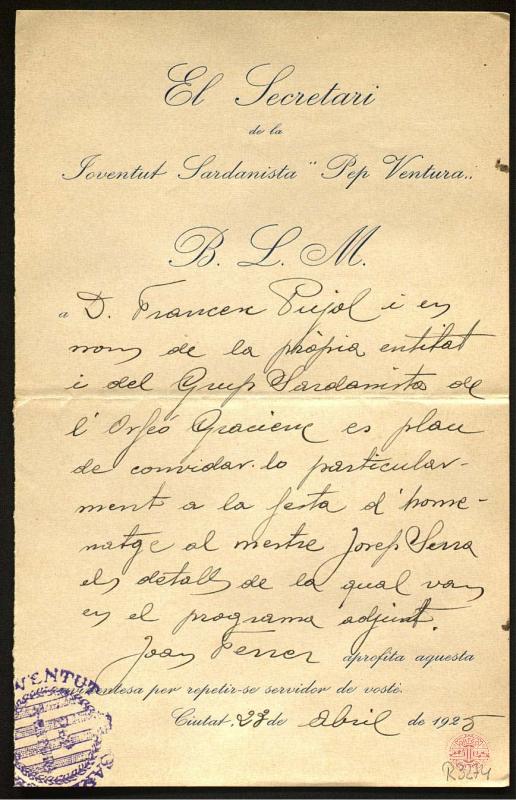 El Secretari
de la
Joventut Sardanista "Pep Ventura"
B. L. M.
a D. Francesc Pujol i en
nom de la pròpia entitat
i del Grup Sardanista de
l'Orfeó Gracienc es plau
de convidar-lo particular-
ment a la festa d'home-
natge al mestre Josep Serra
els detalls de la qual van
en el programa adjunt.
Joan Ferrer aprofita aquesta
per repetir-se servidor de vostè.
Ciutat, 23 de abril de 1925
JOVENTUT
R3274